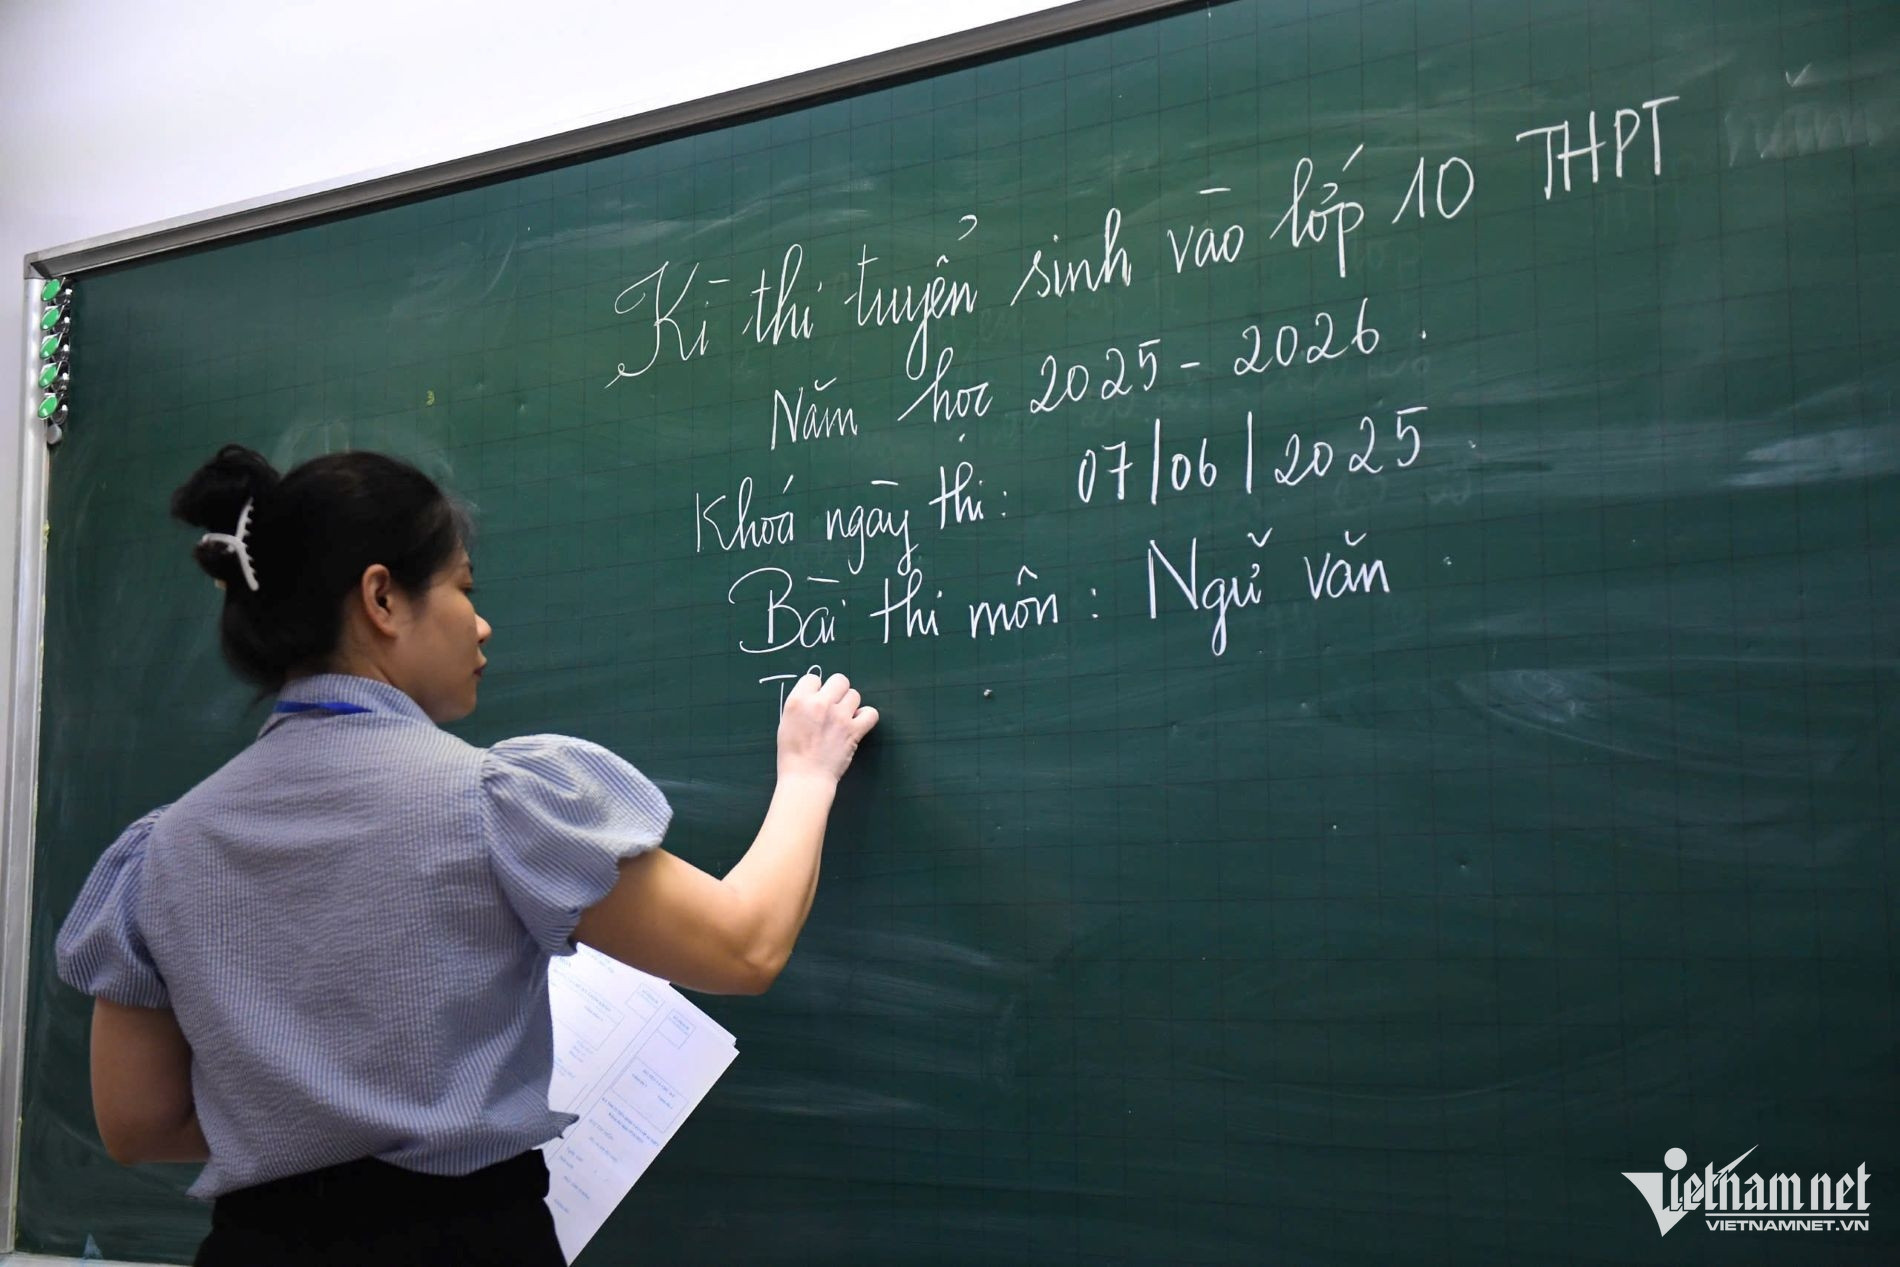 Kì thi tuyển sinh vào lớp 10 THPT
Năm học 2025 - 2026.
Khoá ngày thi: 07/06/2025
Bài thi môn: Ngữ văn
Vietnamnet
VIETNAMNET.VN